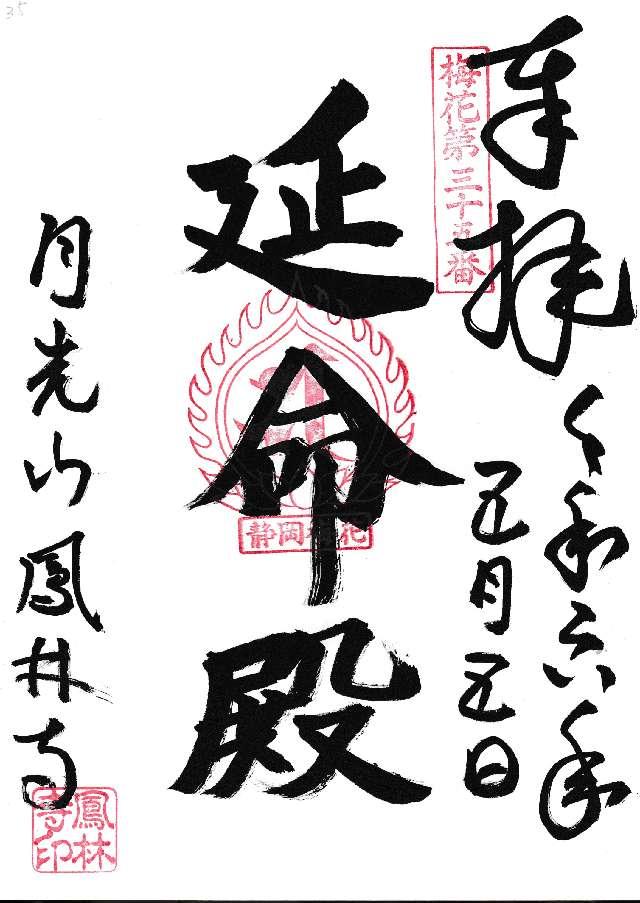 35
奉拝
梅花第三十五番
令和六年
五月五日
延命殿
静岡梅花
月光山鳳林寺
鳳林寺印